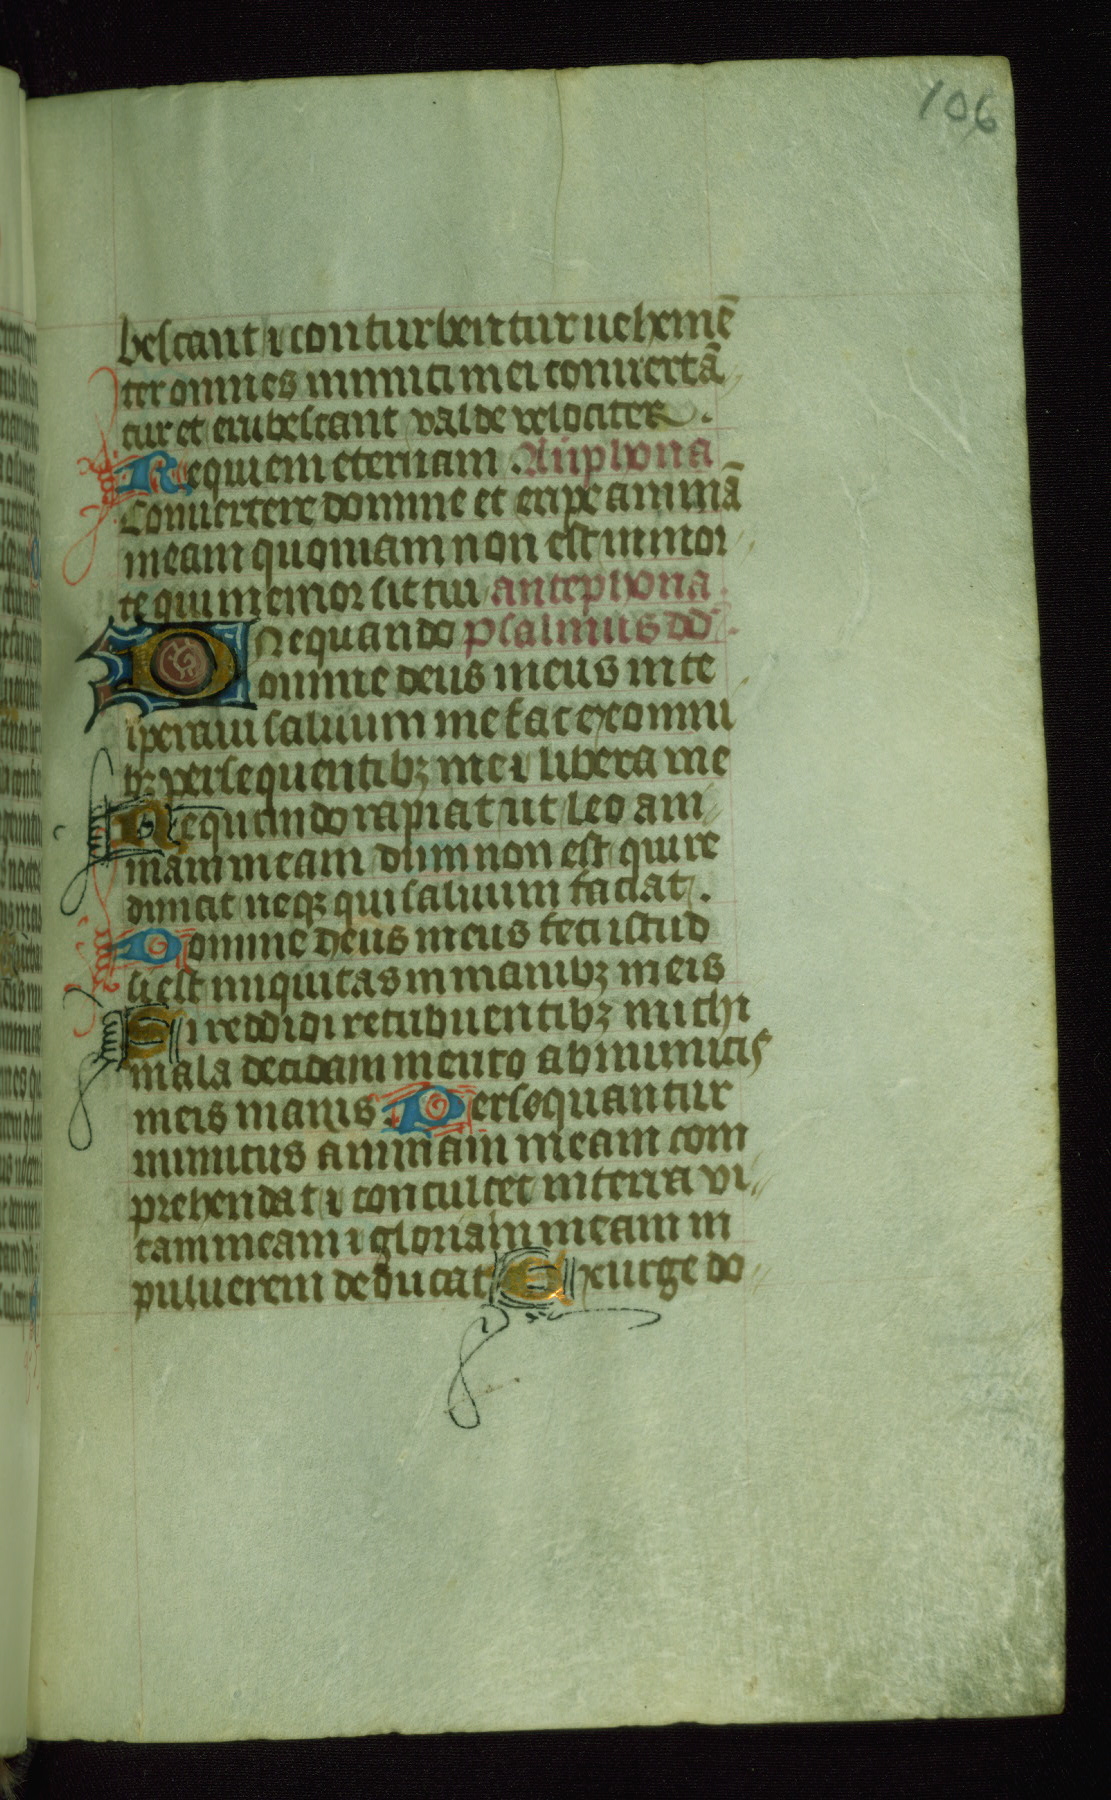 106
bescant ⁊ conturbentur uehemē
ter omnes inimici mei conuertā
tur et erubescant valde velociter.
Requiem eternam. Anphona
Conuertere domine et eripe animā
meam quoniam non est in mor
te qui memor sit tui antephona
Nequando psalmus dd.
Domine deus meus in te
speraui saluum me fac ex omni
bꝫ persequentibꝫ me ⁊ libera me
Nequando rapiat ut leo ani
mam meam dum non est qui re
dimat neqꝫ qui saluum faciat.
Domine deus meus feci istud
si est iniquitas in manibꝫ meis
Si reddidi retribuentibꝫ michi
mala decidam merito ab inimicis
meis inanis. Persequantur
inimicus animam meam com
prehendat ⁊ conculcet in terra vi
tam meam ⁊ gloriam meam in
puluerem deducat Exurge do